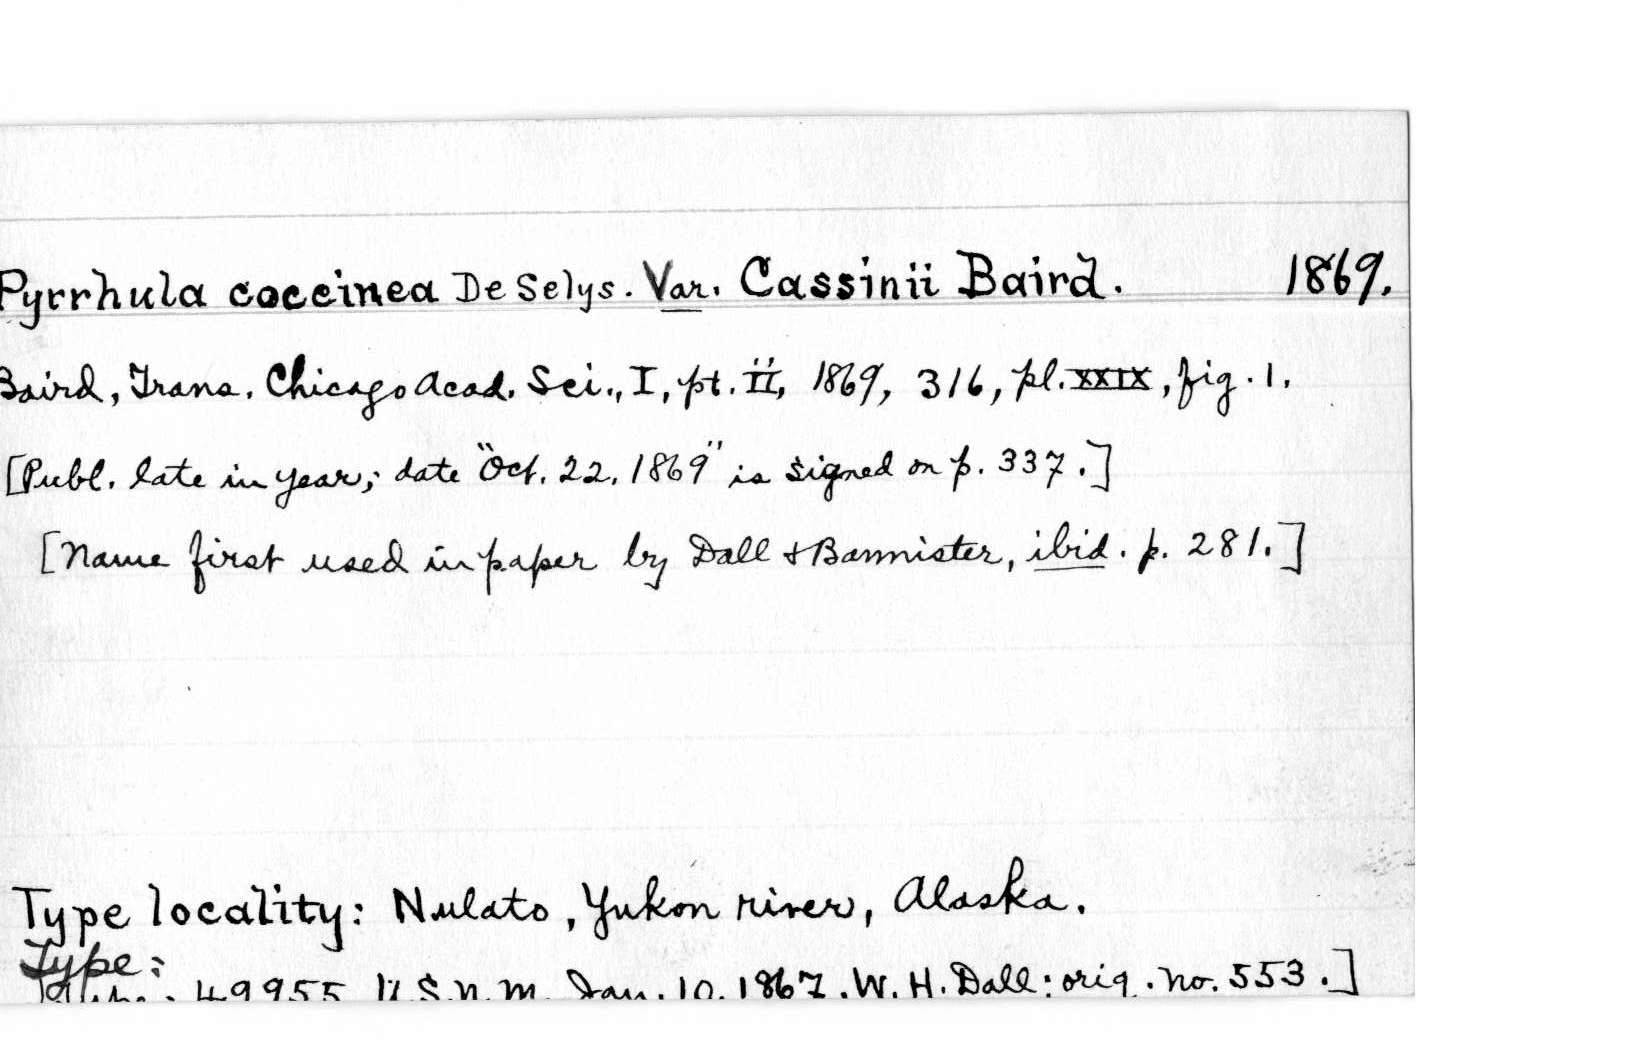 Pyrrhula coccinea De Selys. Var. Cassinii Baird. 1869.
Baird, Trans. Chicago Acad. Sci., I, pt. ii, 1869, 316, pl. XXIX, fig. 1.
[Publ. late in year; date "Oct. 22, 1869" is signed on p. 337.]
[Name first used in paper by Dall & Bannister, ibid. p. 281.]
Type locality: Nulato, Yukon river, Alaska.
Type:
49955 U.S.N.M. Jan. 10. 1867. W. H. Dall: orig. no. 553.]